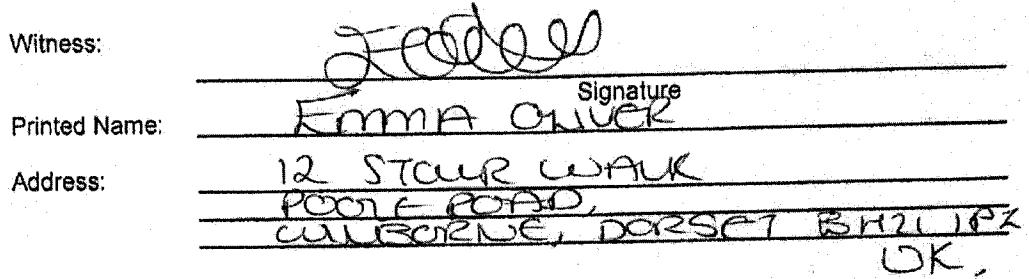 Witness:
Signature
Printed Name: EMMA OLIVER
Address: 12 STOUR WALK
POOLE ROAD,
WIMBORNE, DORSET BH21 1PZ
UK.